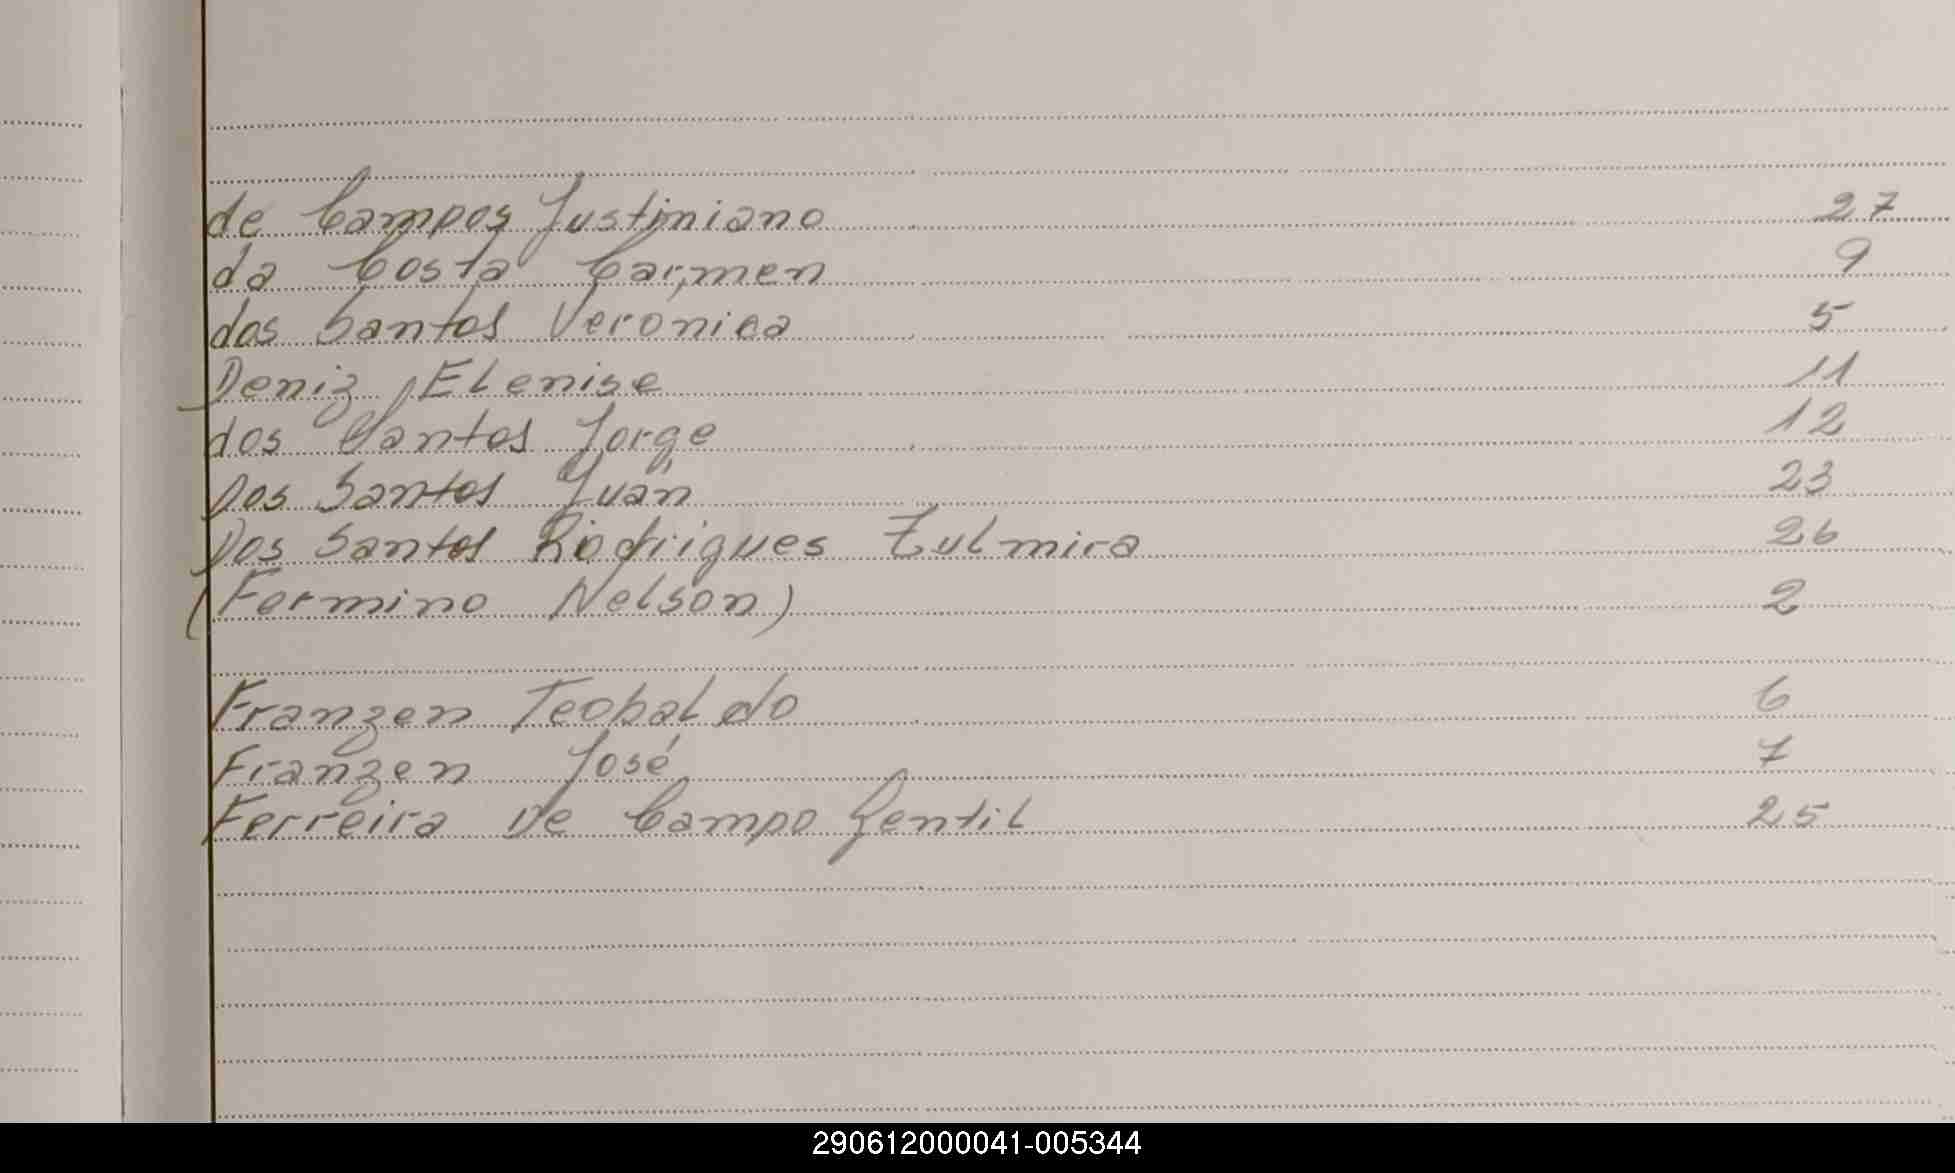 de Campos Justiniano 27
da Costa Carmen 9
dos Santos Veronica 5
Deniz, Elenise 11
dos Santos Jorge 12
Dos Santos Juan 23
Dos Santos Rodrigues Zulmira 26
(Fermino Nelson) 2
Franzen Teobaldo 6
Franzen José 7
Ferreira De Campo Gentil 25
290612000041-005344